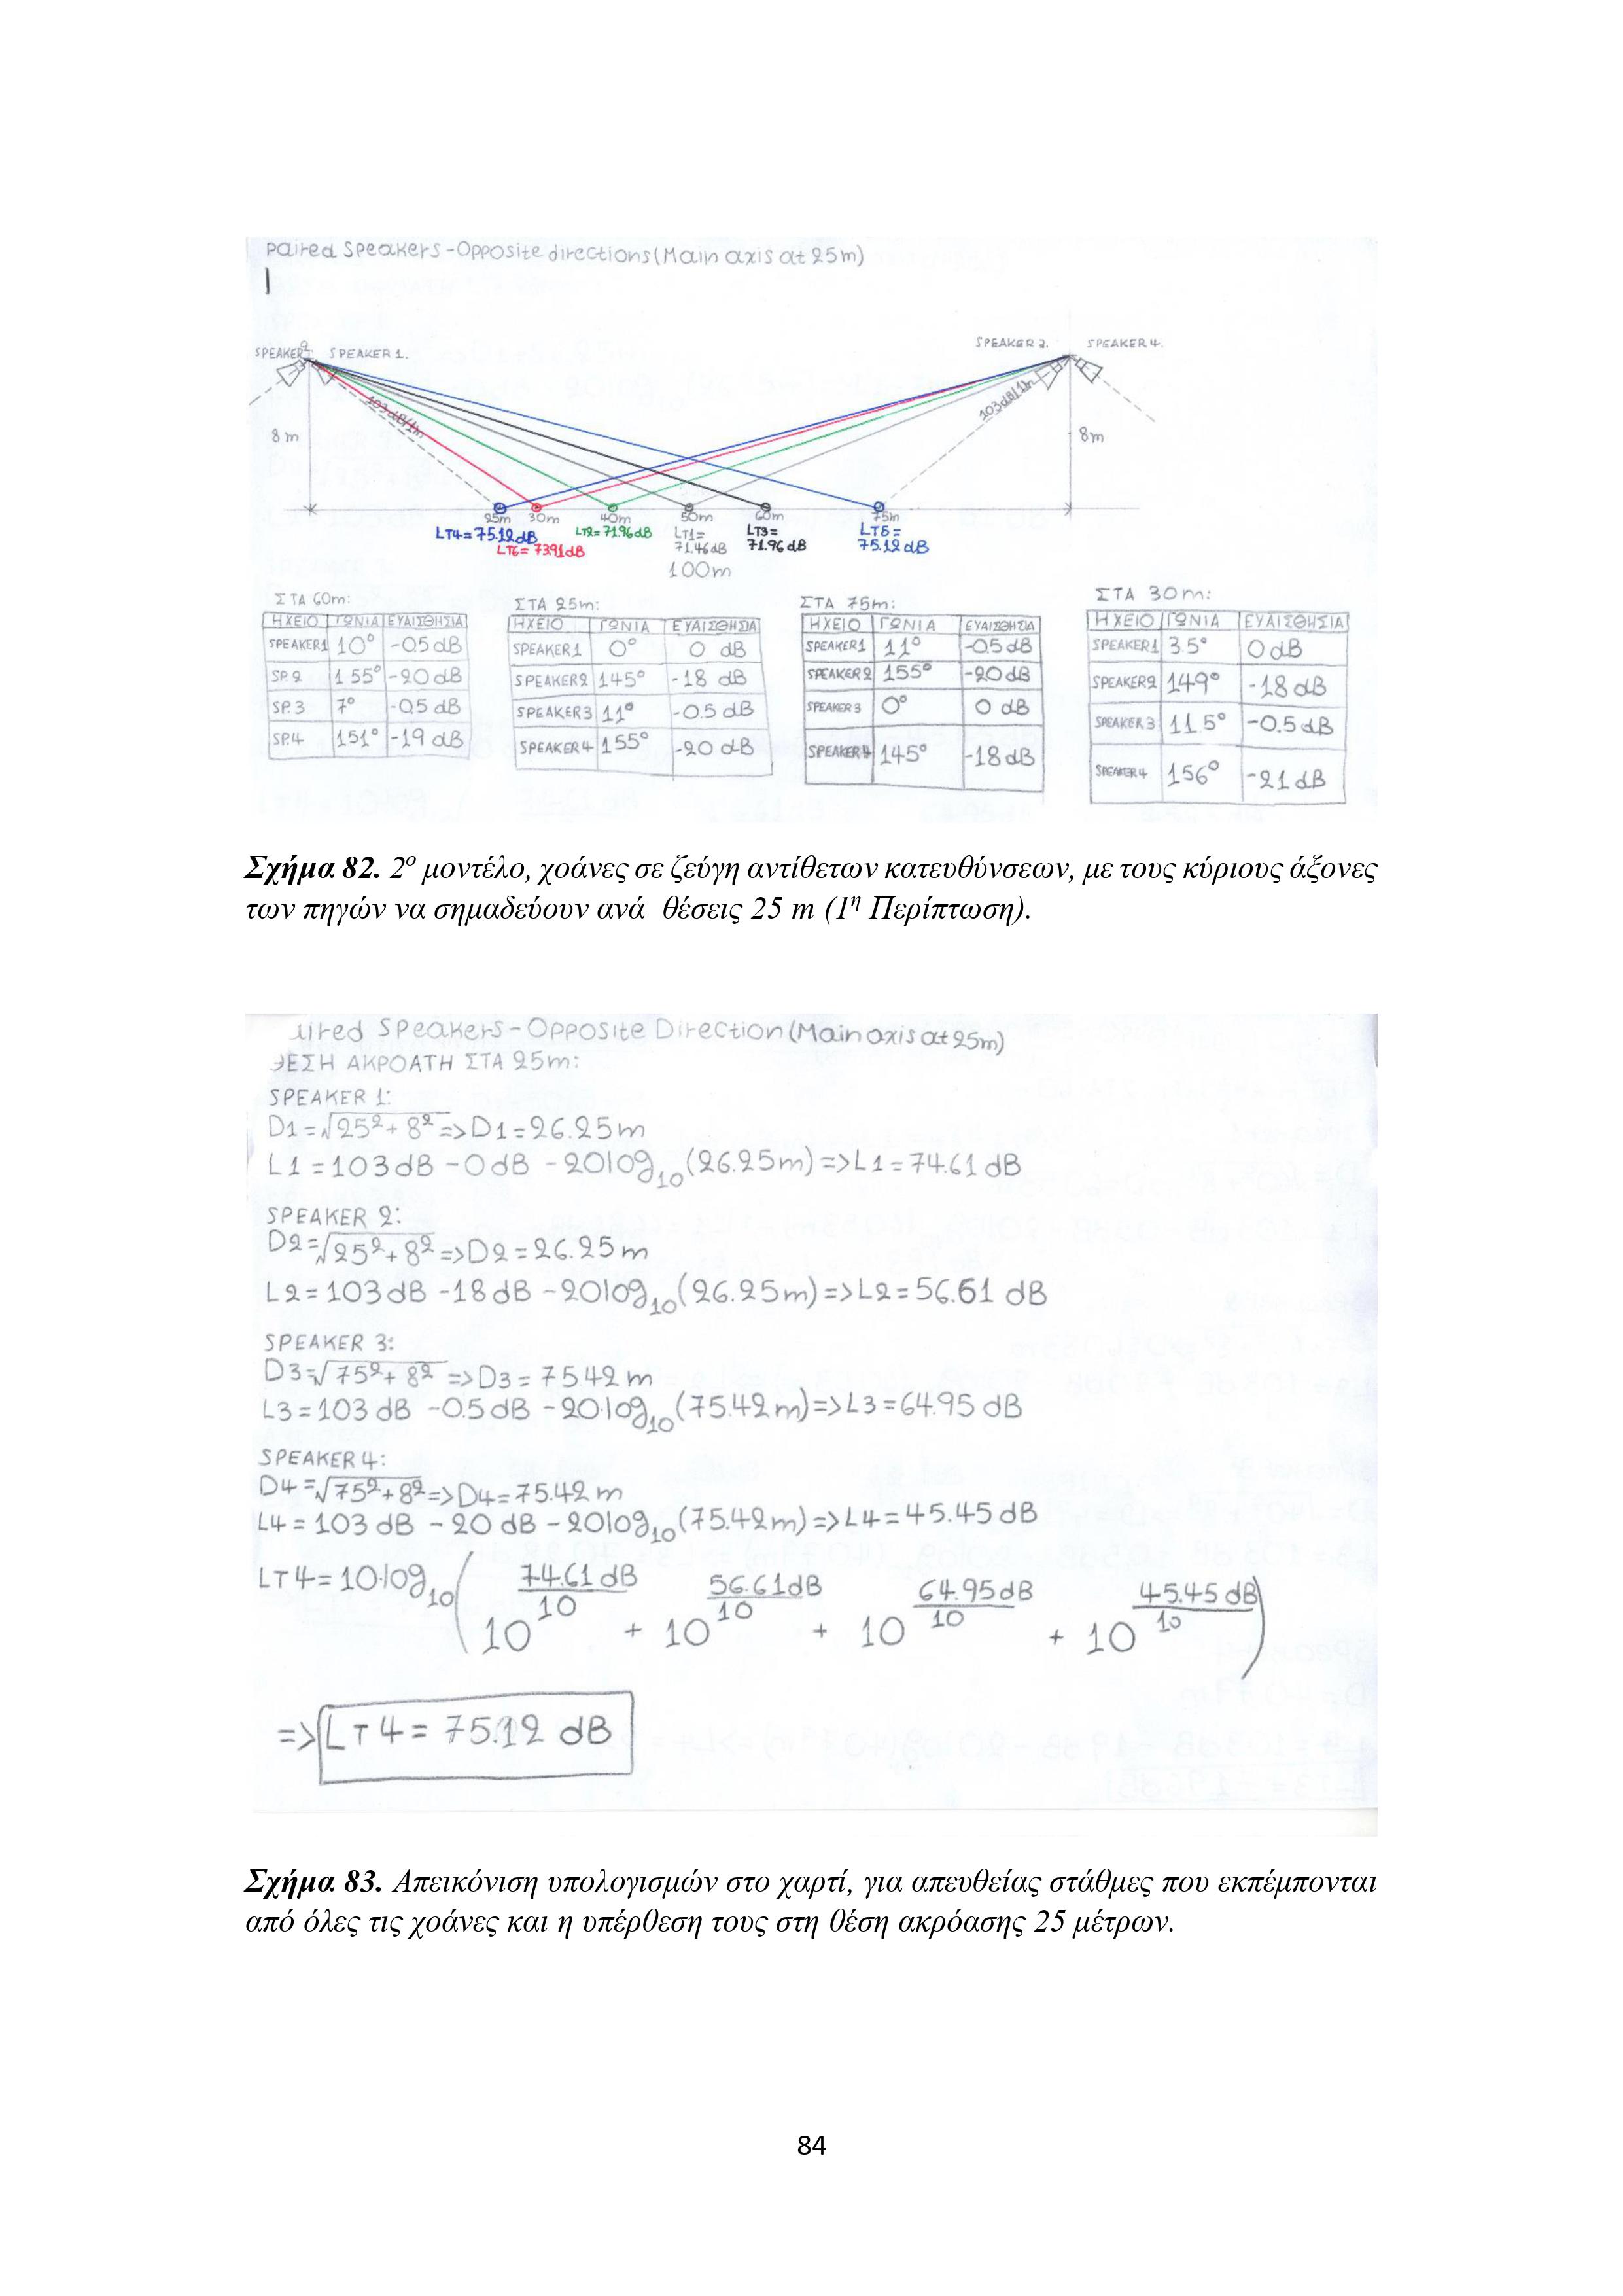 Paired Speakers-Opposite directions(Main axis at 25m)
SPEAKER2 SPEAKER 1.
SPEAKER 3. SPEAKER 4.
103dB/1m
103dB/1m
8m
8m
25m 30m 40m 50m 60m 75m
LT4=75.12dB
LT6=73.91dB
LT2=71.96dB
LT1=
71.46dB
LT3=
71.96 dB
LT5=
75.12 dB
100m
ΣΤΑ 60m:
ΗΧΕΙΟ ΓΩΝΙΑ ΕΥΑΙΣΘΗΣΙΑ
SPEAKER1 10° -0.5dB
SP.2 155° -20dB
SP.3 7° -0.5 dB
SP.4 151° -19 dB
ΣΤΑ 25m:
ΗΧΕΙΟ ΓΩΝΙΑ ΕΥΑΙΣΘΗΣΙΑ
SPEAKER1 0° 0 dB
SPEAKER2 145° -18 dB
SPEAKER3 11° -0.5 dB
SPEAKER4 155° -20 dB
ΣΤΑ 75m:
ΗΧΕΙΟ ΓΩΝΙΑ ΕΥΑΙΣΘΗΣΙΑ
SPEAKER1 11° -0.5dB
SPEAKER2 155° -20dB
SPEAKER3 0° 0 dB
SPEAKER4 145° -18dB
ΣΤΑ 30m:
ΗΧΕΙΟ ΓΩΝΙΑ ΕΥΑΙΣΘΗΣΙΑ
SPEAKER1 3.5° 0dB
SPEAKER2 149° -18dB
SPEAKER3 11.5° -0.5dB
SPEAKER4 156° -21dB
Σχήμα 82. 2ο μοντέλο, χοάνες σε ζεύγη αντίθετων κατευθύνσεων, με τους κύριους άξονες
των πηγών να σημαδεύουν ανά θέσεις 25 m (1η Περίπτωση).
aired Speakers-Opposite Direction(Main axis at 25m)
ΘΕΣΗ ΑΚΡΟΑΤΗ ΣΤΑ 25m:
SPEAKER 1:
D1=√25²+8² =>D1=26.25m
L1=103dB-0dB-20log10(26.25m)=>L1=74.61dB
SPEAKER 2:
D2=√25²+8² =>D2=26.25m
L2=103dB-18dB-20log10(26.25m)=>L2=56.61 dB
SPEAKER 3:
D3=√75²+8² =>D3=75.42m
L3=103dB-0.5dB-20log10(75.42m)=>L3=64.95dB
SPEAKER 4:
D4=√75²+8² =>D4=75.42m
L4=103dB-20dB-20log10(75.42m)=>L4=45.45dB
LT4=10·log10(10^(74.61dB/10) + 10^(56.61dB/10) + 10^(64.95dB/10) + 10^(45.45dB/10))
=>LT4=75.12 dB
Σχήμα 83. Απεικόνιση υπολογισμών στο χαρτί, για απευθείας στάθμες που εκπέμπονται
από όλες τις χοάνες και η υπέρθεση τους στη θέση ακρόασης 25 μέτρων.
84